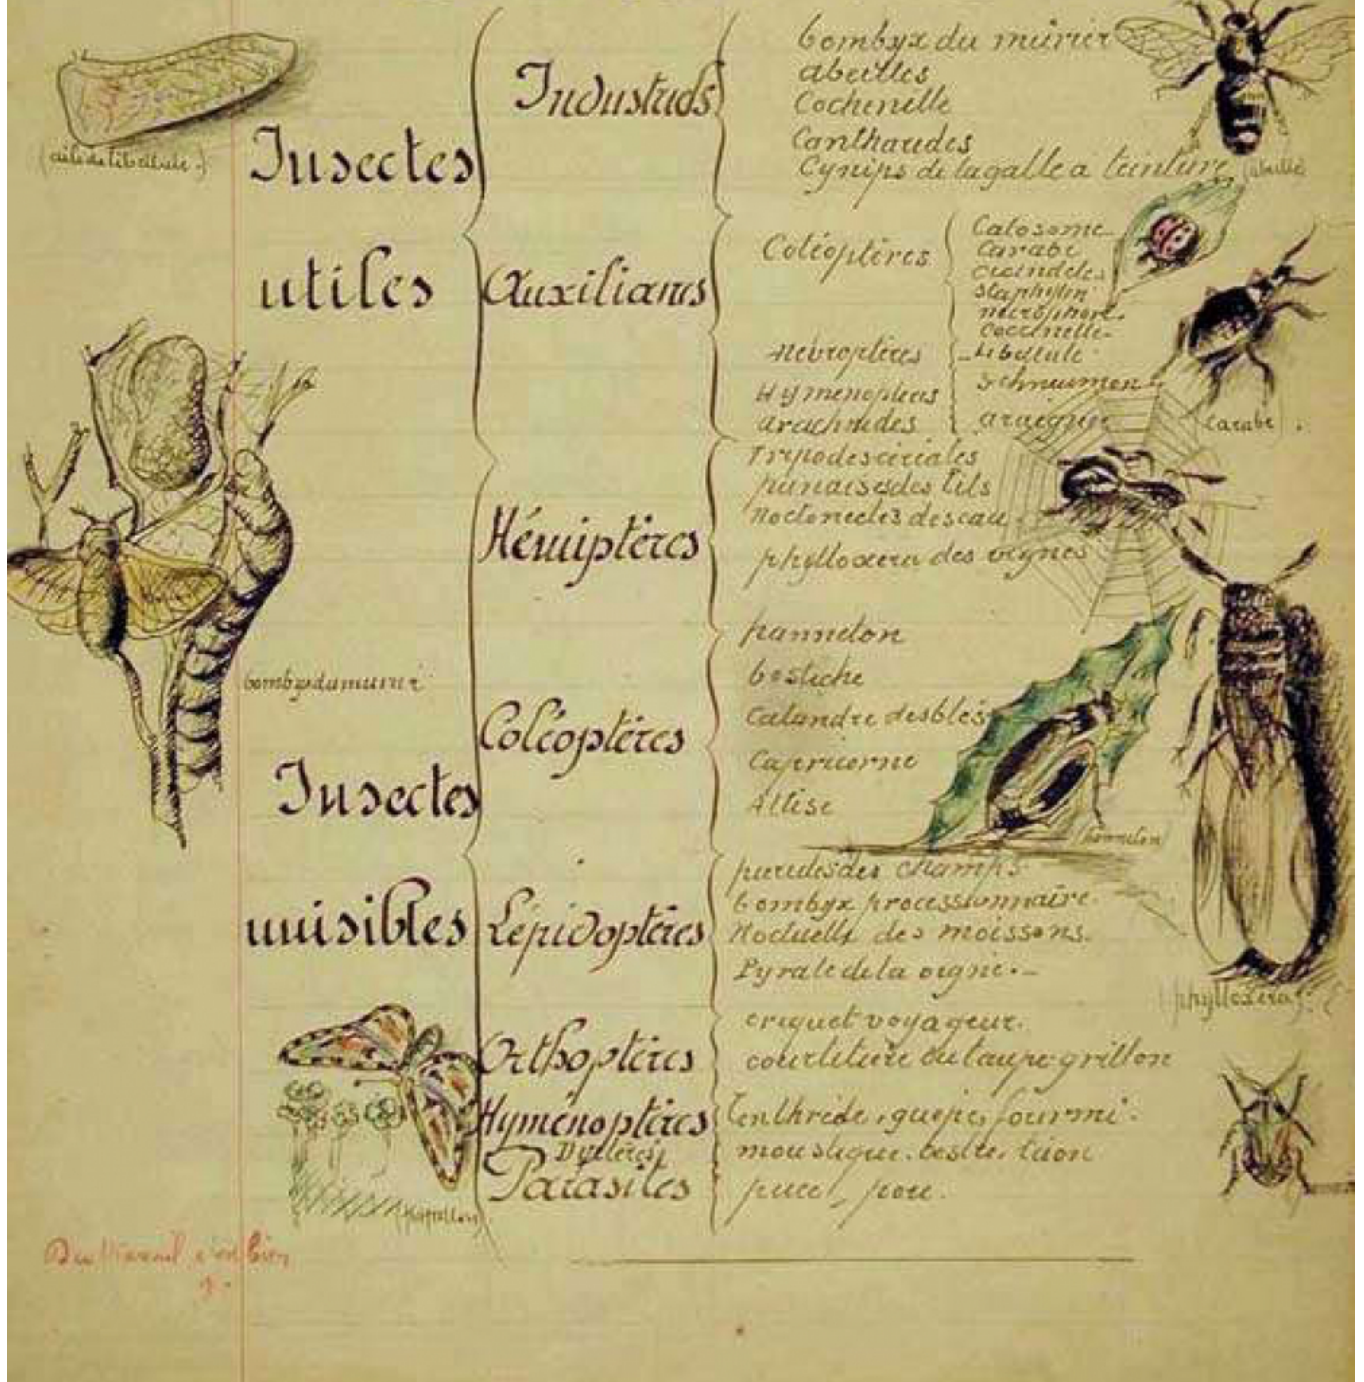 (aile de libellule.)
Insectes
utiles
Industriels
bombyx du mûrier
abeilles
Cochenille
Cantharides
Cynips de la galle a teinture
(abeille)
Auxiliaires
Coléoptères
Calosome
Carabe
cicindèles
staphylin
nécrophore
coccinelle
névroptères
libellule
Hymenopteres
Ichneumon
arachnides
araignée
Carabe.
bombyx du murier
Insectes
nuisibles
Hémiptères
punaises des lits
Noctonectes des eau
phylloxera des vignes
Coléoptères
hanneton
bostiche
Calandre des blés
Capricorne
Altise
(hanneton)
Lépidoptères
des champs
bombyx processionnaire.
Noctuelle des moissons.
Pyrale de la vigne.-
(phylloxera)
Orthoptères
criquet voyageur.
courtilière ou taupe grillon
Hyménoptères
Tenthrède, guêpe, fourmi.
Diptères
moustique. oestre. taon
Parasites
puce, pou.
(papillon)
bien